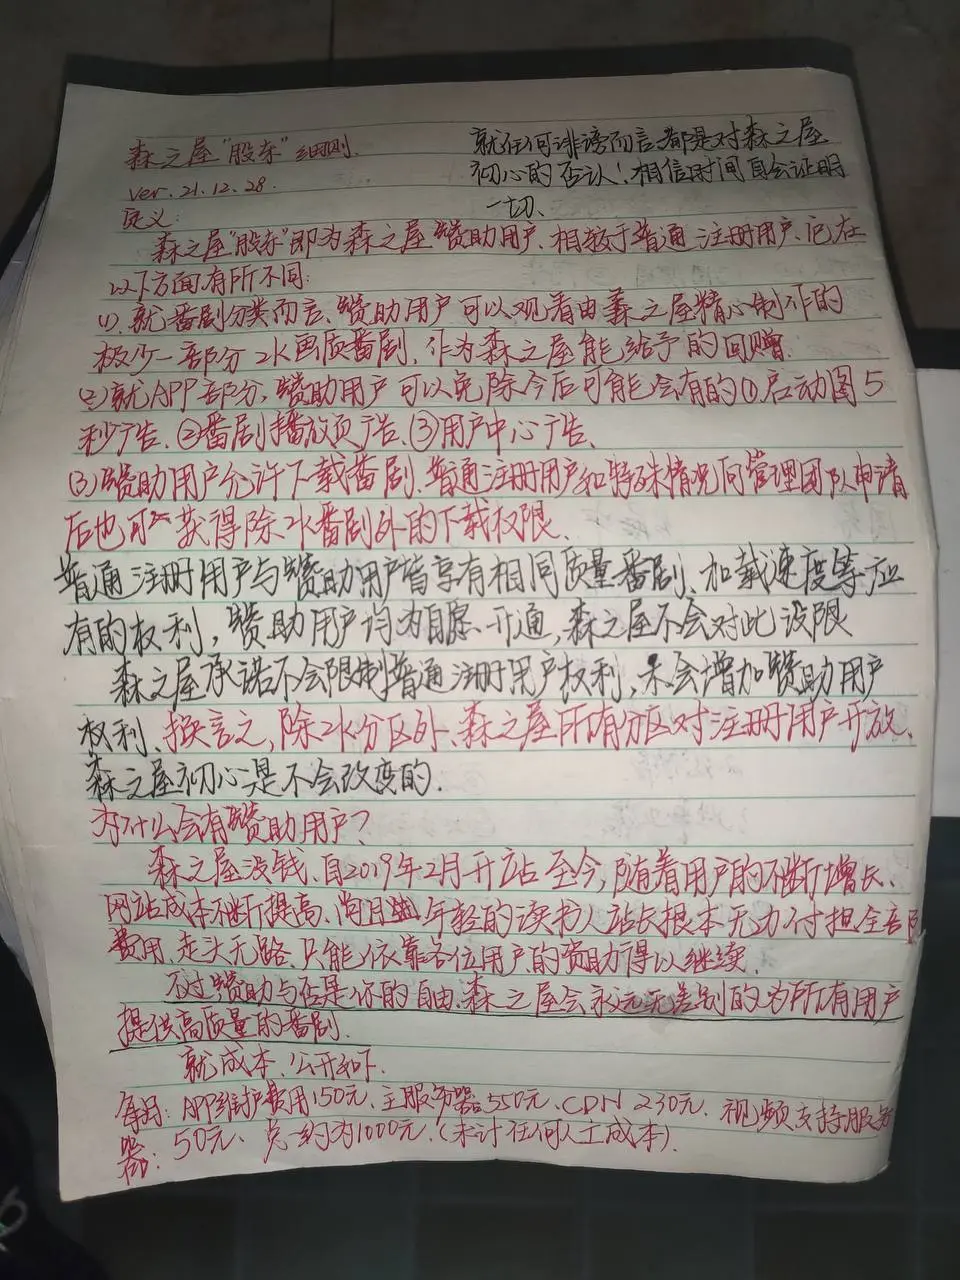 森之屋"股东"细则.
ver.21.12.28.
就任何诽谤而言,都是对森之屋
初心的否认!相信时间自会证明
一切、
定义:
森之屋"股东"即为森之屋赞助用户、相较于普通注册用户、它在
以下方面有所不同:
(1).就番剧分类而言、赞助用户可以观看由森之屋精心制作的
极少一部分2K画质番剧、作为森之屋能给予的回赠.
(2)就APP部分,赞助用户可以免除今后可能会有的①启动图5
秒广告、②番剧播放页广告、③用户中心广告、
(3)赞助用户允许下载番剧、普通注册用户和特殊情况向管理团队申请
后也可 获得除2K番剧外的下载权限、
普通注册用户与赞助用户皆享有相同质量番剧、加载速度等应
有的权利,赞助用户均为自愿开通,森之屋不会对此设限
森之屋承诺不会限制普通注册用户权利,不会增加赞助用户
权利、换言之,除2K分区外、森之屋所有分区对注册用户开放、
森之屋初心是不会改变的.
为什么会有赞助用户?
森之屋没钱、自2019年2月开站至今,随着用户的不断增长、
网站成本不断提高、 年轻的读书人站长根本无力付担全部
费用、走头无路、只能依靠各位用户的赞助得以继续.
不过赞助与否是你的自由、森之屋会永远无差别的为所有用户
提供高质量的番剧.
就成本、公开如下.
每月:APP维护费用150元、主服务器550元、CDN 230元、视频支持服务
器:50元、总约为1000元.(未计任何人工成本).